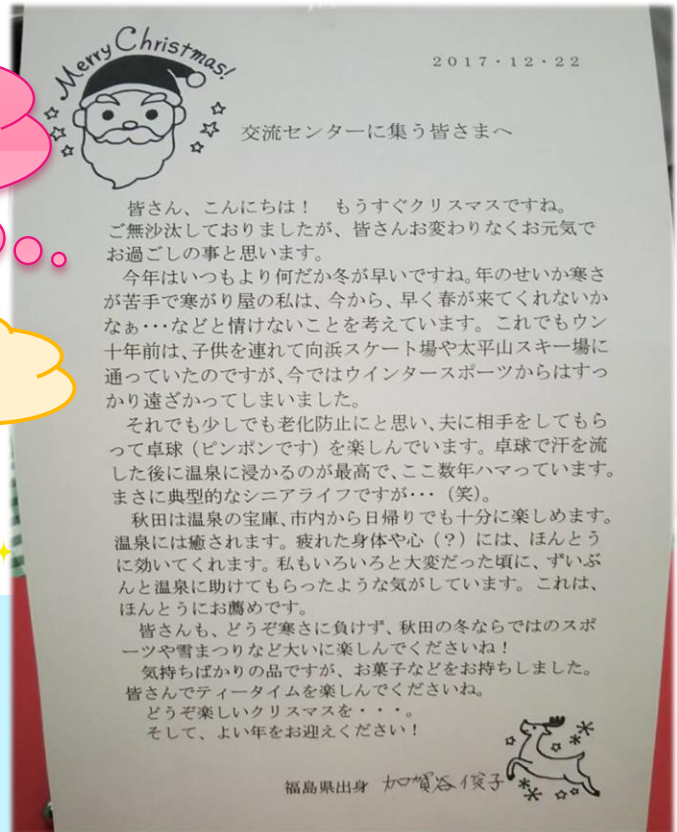 Merry Christmas!
2017・12・22
交流センターに集う皆さまへ
皆さん、こんにちは！　もうすぐクリスマスですね。
ご無沙汰しておりましたが、皆さんお変わりなくお元気で
お過ごしの事と思います。
今年はいつもより何だか冬が早いですね。年のせいか寒さ
が苦手で寒がり屋の私は、今から、早く春が来てくれないか
なぁ・・・などと情けないことを考えています。これでもウン
十年前は、子供を連れて向浜スケート場や太平山スキー場に
通っていたのですが、今ではウインタースポーツからはすっ
かり遠ざかってしまいました。
それでも少しでも老化防止にと思い、夫に相手をしてもら
って卓球（ピンポンです）を楽しんでいます。卓球で汗を流
した後に温泉に浸かるのが最高で、ここ数年ハマっています。
まさに典型的なシニアライフですが・・・（笑）。
秋田は温泉の宝庫、市内から日帰りでも十分に楽しめます。
温泉には癒されます。疲れた身体や心（？）には、ほんとう
に効いてくれます。私もいろいろと大変だった頃に、ずいぶ
んと温泉に助けてもらったような気がしています。これは、
ほんとうにお薦めです。
皆さんも、どうぞ寒さに負けず、秋田の冬ならではのスポ
ーツや雪まつりなど大いに楽しんでくださいね！
気持ちばかりの品ですが、お菓子などをお持ちしました。
皆さんでティータイムを楽しんでくださいね。
どうぞ楽しいクリスマスを・・・。
そして、よい年をお迎えください！
福島県出身 加賀谷俊子